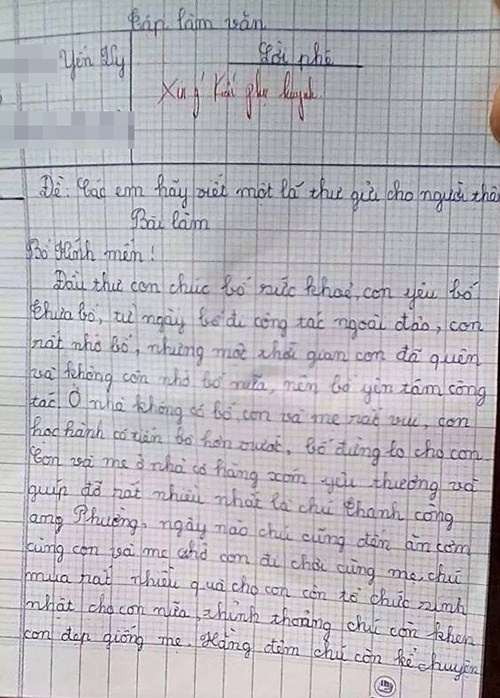 Tập làm văn
Yến Vy
Lời phê
Xin ý kiến phụ huynh
Đề: Các em hãy viết một lá thư gửi cho người thân
Bài làm
Bố Kính mến!
Đầu thư con chúc bố sức khoẻ, con yêu bố
Thưa bố, từ ngày bố đi công tác ngoài đảo, con
rất nhớ bố, nhưng một thời gian con đã quên
và không còn nhớ bố nữa, nên bố yên tâm công
tác. Ở nhà không có bố, con và mẹ rất vui, con
học hành có tiến bộ hơn trước, bố đừng lo cho con.
Con và mẹ ở nhà có hàng xóm yêu thương và
giúp đỡ rất nhiều nhất là chú Thanh công
an Phường, ngày nào chú cũng đến ăn cơm
cùng con và mẹ chở con đi chơi cùng mẹ, chú
mua rất nhiều quà cho con còn tổ chức sinh
nhật cho con nữa, thỉnh thoảng chú còn khen
con đẹp giống mẹ. Hằng đêm chú còn kể chuyện